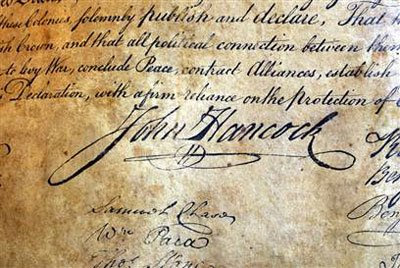 these Colonies, solemnly publish and declare, That
sh Crown, and that all political connection between them
to levy War, conclude Peace, contract Alliances, establish
Declaration, with a firm reliance on the protection of
John Hancock
Samuel Chase
Wm Paca
Thos